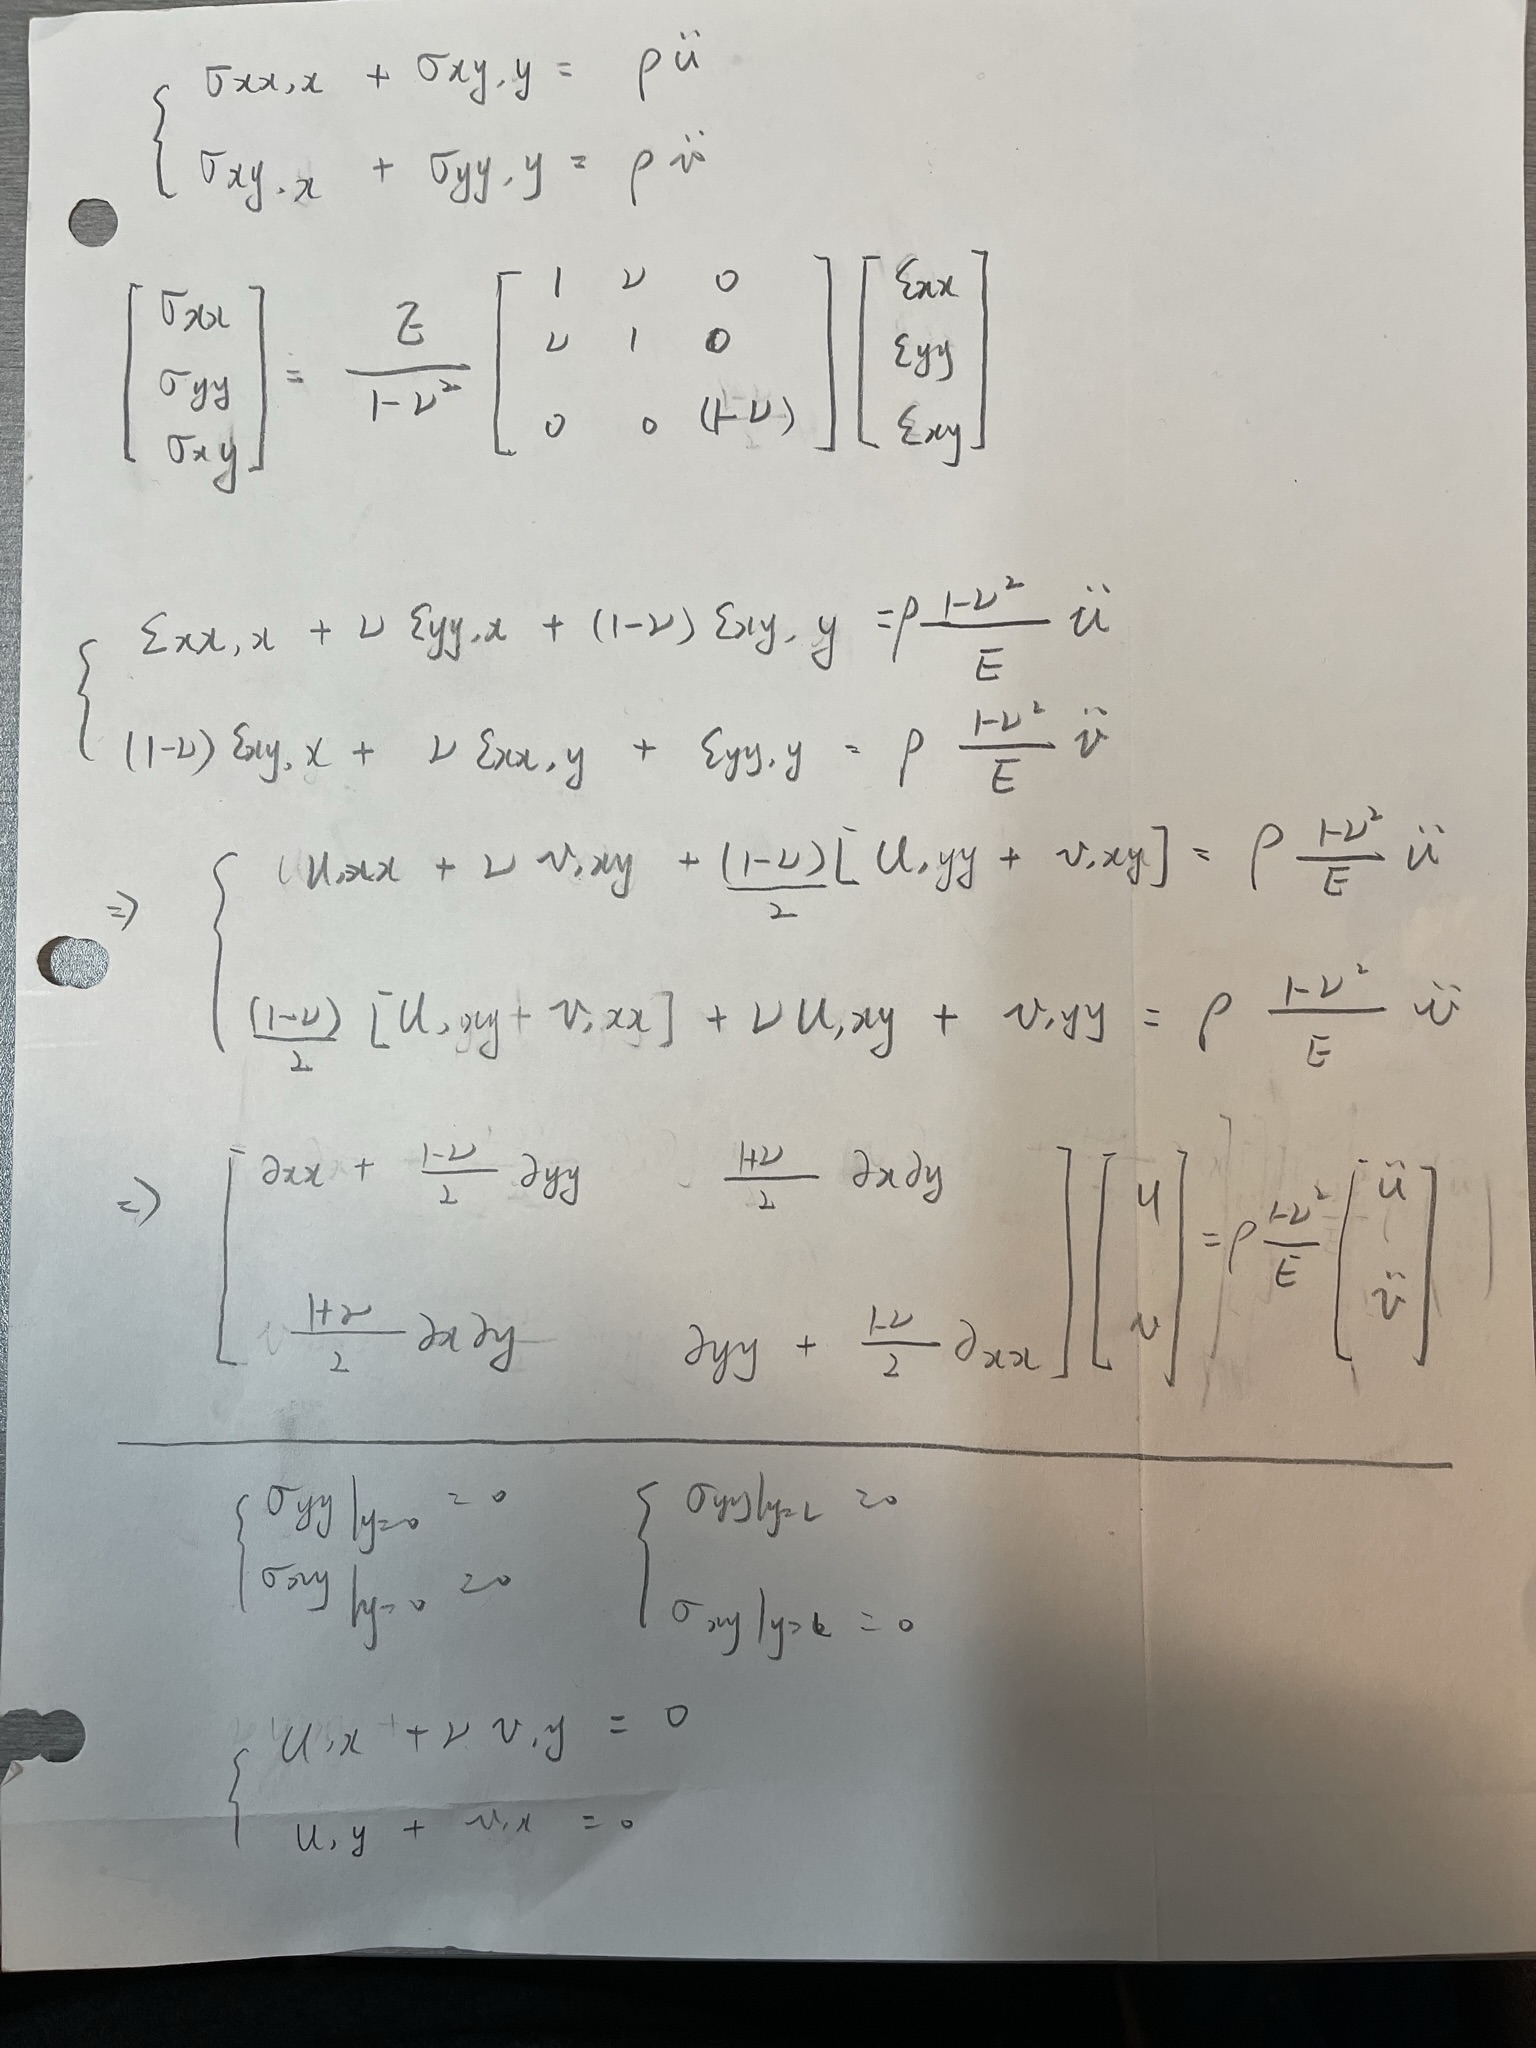 { σxx,x + σxy,y = ρü
{ σxy,x + σyy,y = ρv̈
[σxx; σyy; σxy] = E/(1-ν²) [1 ν 0; ν 1 0; 0 0 (1-ν)] [εxx; εyy; εxy]
{ εxx,x + ν εyy,x + (1-ν) εxy,y = ρ (1-ν²)/E ü
{ (1-ν) εxy,x + ν εxx,y + εyy,y = ρ (1-ν²)/E v̈
⇒ { u,xx + ν v,xy + (1-ν)/2 [u,yy + v,xy] = ρ (1-ν²)/E ü
{ (1-ν)/2 [u,xy + v,xx] + ν u,xy + v,yy = ρ (1-ν²)/E v̈
⇒ [∂xx + (1-ν)/2 ∂yy   (1+ν)/2 ∂x∂y; (1+ν)/2 ∂x∂y   ∂yy + (1-ν)/2 ∂xx] [u; v] = ρ (1-ν²)/E [ü; v̈]
{ σyy|y=0 = 0   { σyy|y=L = 0
{ σxy|y=0 = 0   { σxy|y=L = 0
{ u,x + ν v,y = 0
{ u,y + v,x = 0